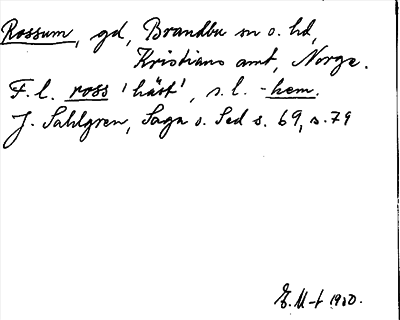 Rossum, gd, Brandbu sn o. hd,
Kristians amt, Norge.
F. l. ross 'häst', s. l. -hem.
J. Sahlgren, Saga o. Sed s. 69, s. 79
E. M-t 1900.